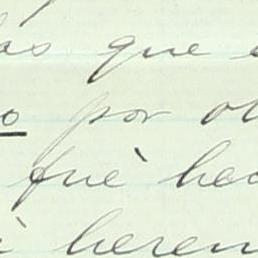 las que e
o por ot
fuè hec
heren